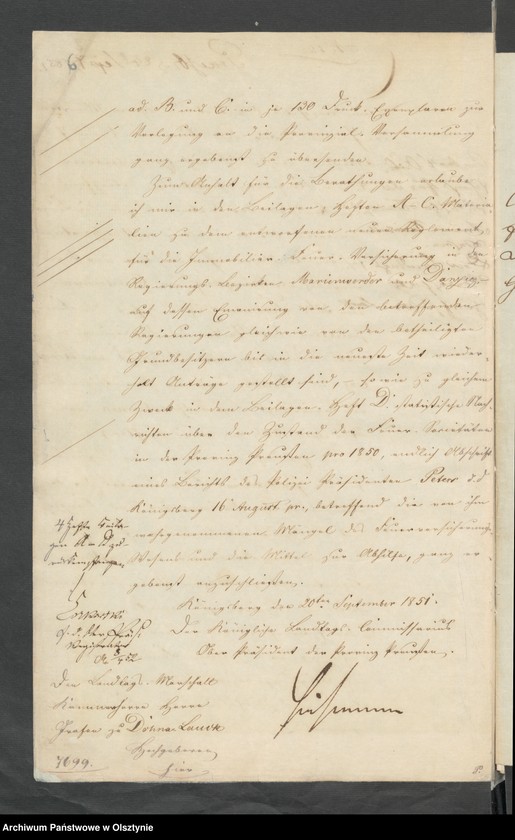 ad. B. und C. in je 130 Druck-Exemplaren zur
Vorlegung an die Provinzial-Versammlung
ganz ergebenst zu übersenden.
Zum Anhalt für die Berathungen erlaube
ich mir in den Beilagen-Heften A-C. Materia-
lien zu dem entworfenen neuen Reglement,
für die Immobiliar-Feuer-Versicherung in den
Regierungs-Bezirken Marienwerder und Danzig,
auf dessen Emanirung von den betreffenden
Regierungen gleichwie von den betheiligten
Grundbesitzern bis in die neueste Zeit wieder-
holt Anträge gestellt sind, - sowie zu gleichem
Zweck in dem Beilagen-Heft D. statistische Nach-
richten über den Zustand der Feuer-Societäten
in der Provinz Preußen pro 1850, endlich Abschrift
eines Berichts des Polizei Präsidenten Peters d.d
Königsberg 16 August pr., betreffend die von ihm
wahrgenommenen Mängel des Feuerversicherungs-
Wesens und die Mittel zur Abhilfe, ganz er-
gebenst anzuschließen.
Königsberg den 20ten September 1851.
Der Königliche Landtags-Commissarius
Ober Präsident der Provinz Preußen.
4 Hefte Beila-
gen A-D
zurückempfangen
Den Landtags-Marschall
Kammerherrn Herrn
Grafen zu Dohna-Lauck
Hochgeboren
hier
7699.
Archiwum Państwowe w Olsztynie